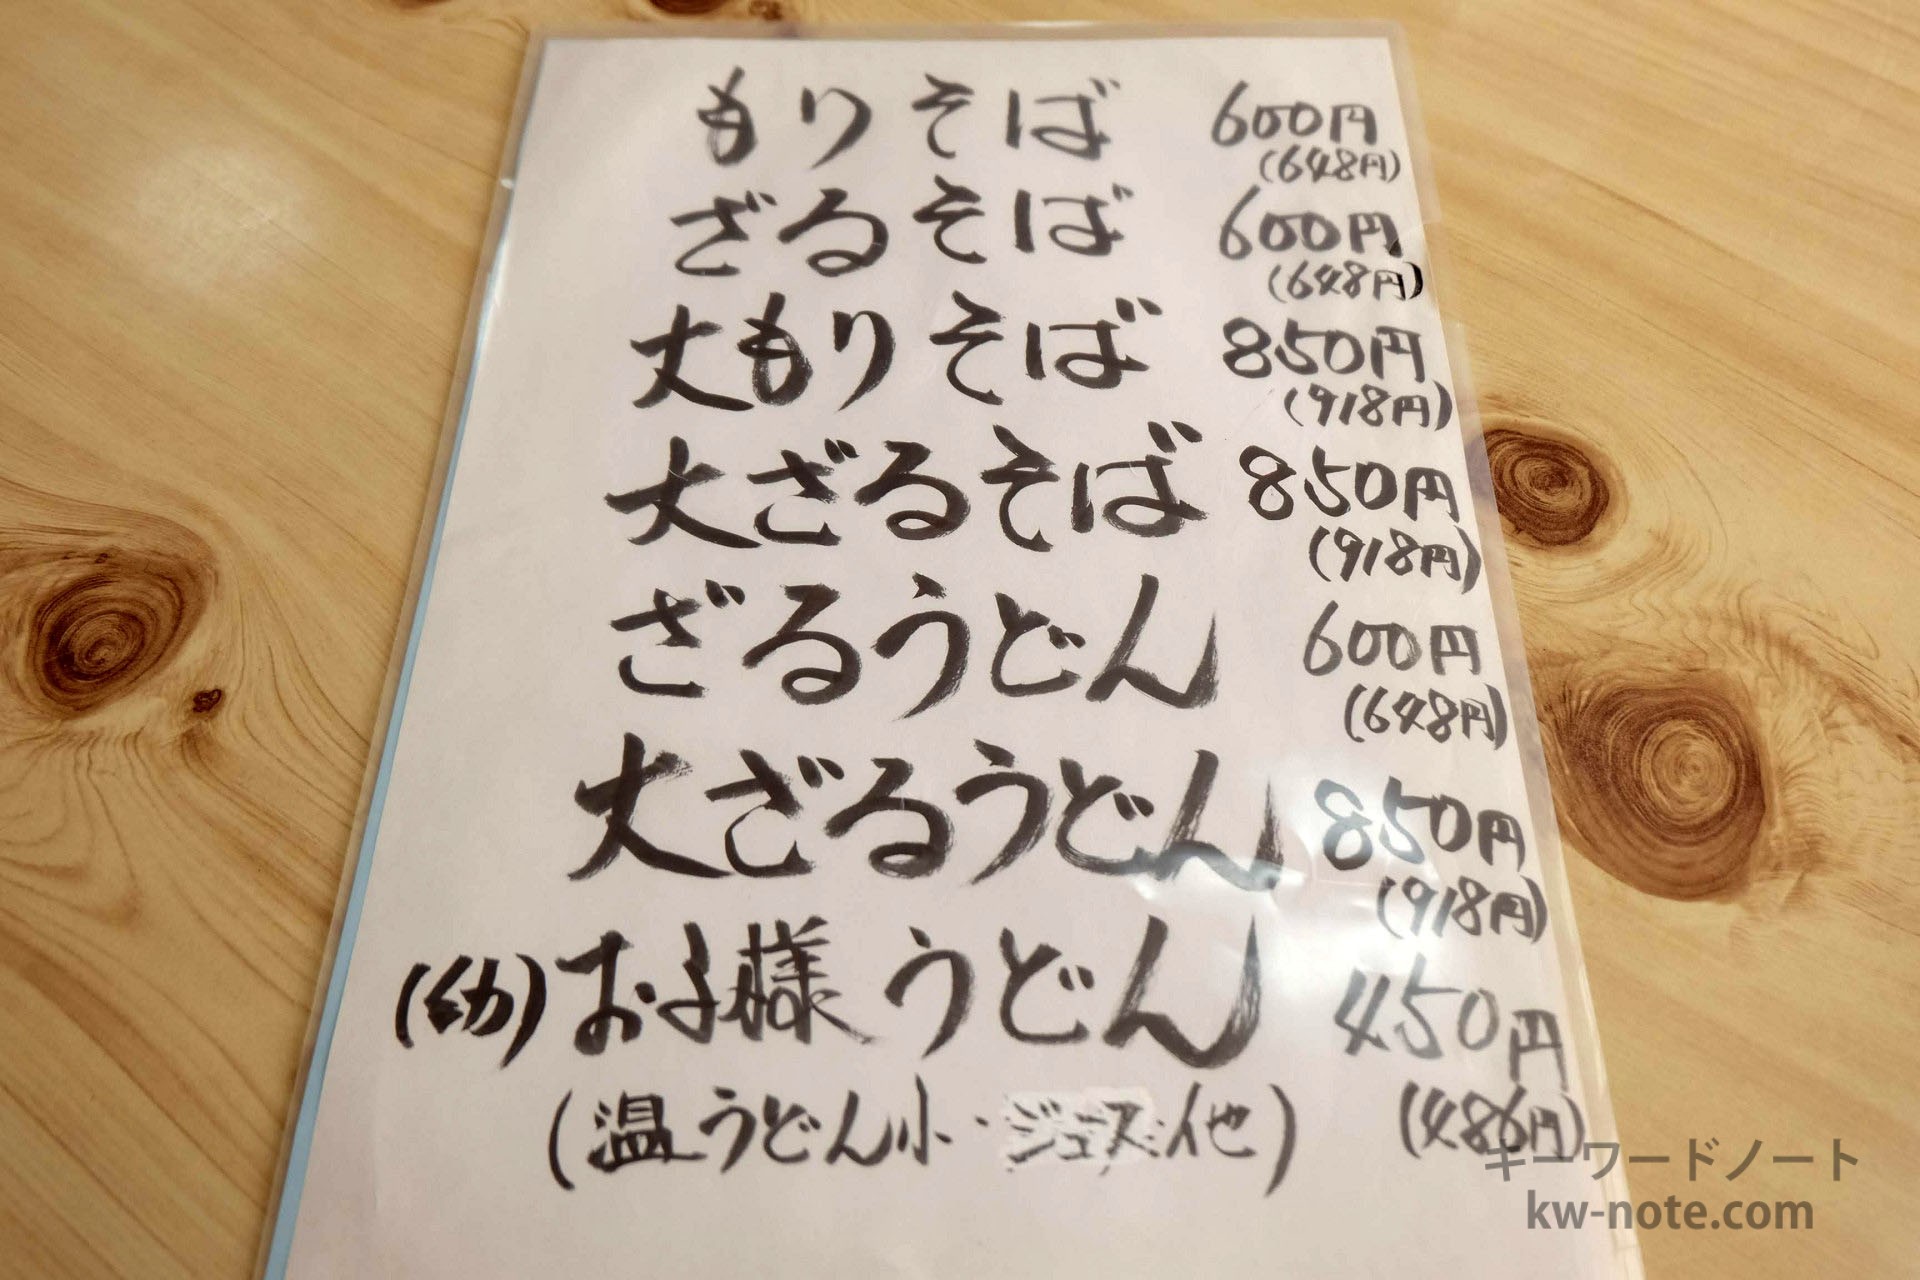 もりそば 600円
(648円)
ざるそば 600円
(648円)
大もりそば 850円
(918円)
大ざるそば 850円
(918円)
ざるうどん 600円
(648円)
大ざるうどん 850円
(918円)
(幼)お子様うどん 450円
(温うどん小・ジュース・他) (486円)
キーワードノート
kw-note.com